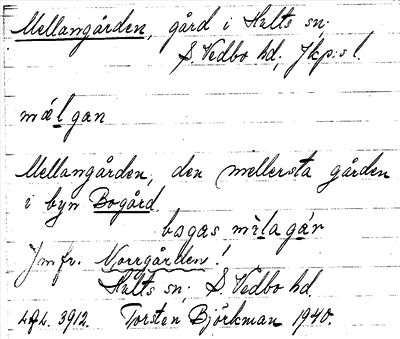 Mellangården, gård i Hults sn;
S. Vedbo hd, Jkp:s l.
mǽlgan
Mellangården, den mellersta gården
i byn Bogård.
bogas mìlagár
Jmfr. Norrgården!
Hults sn; S. Vedbo hd.
3912. Torsten Björkman 1940.